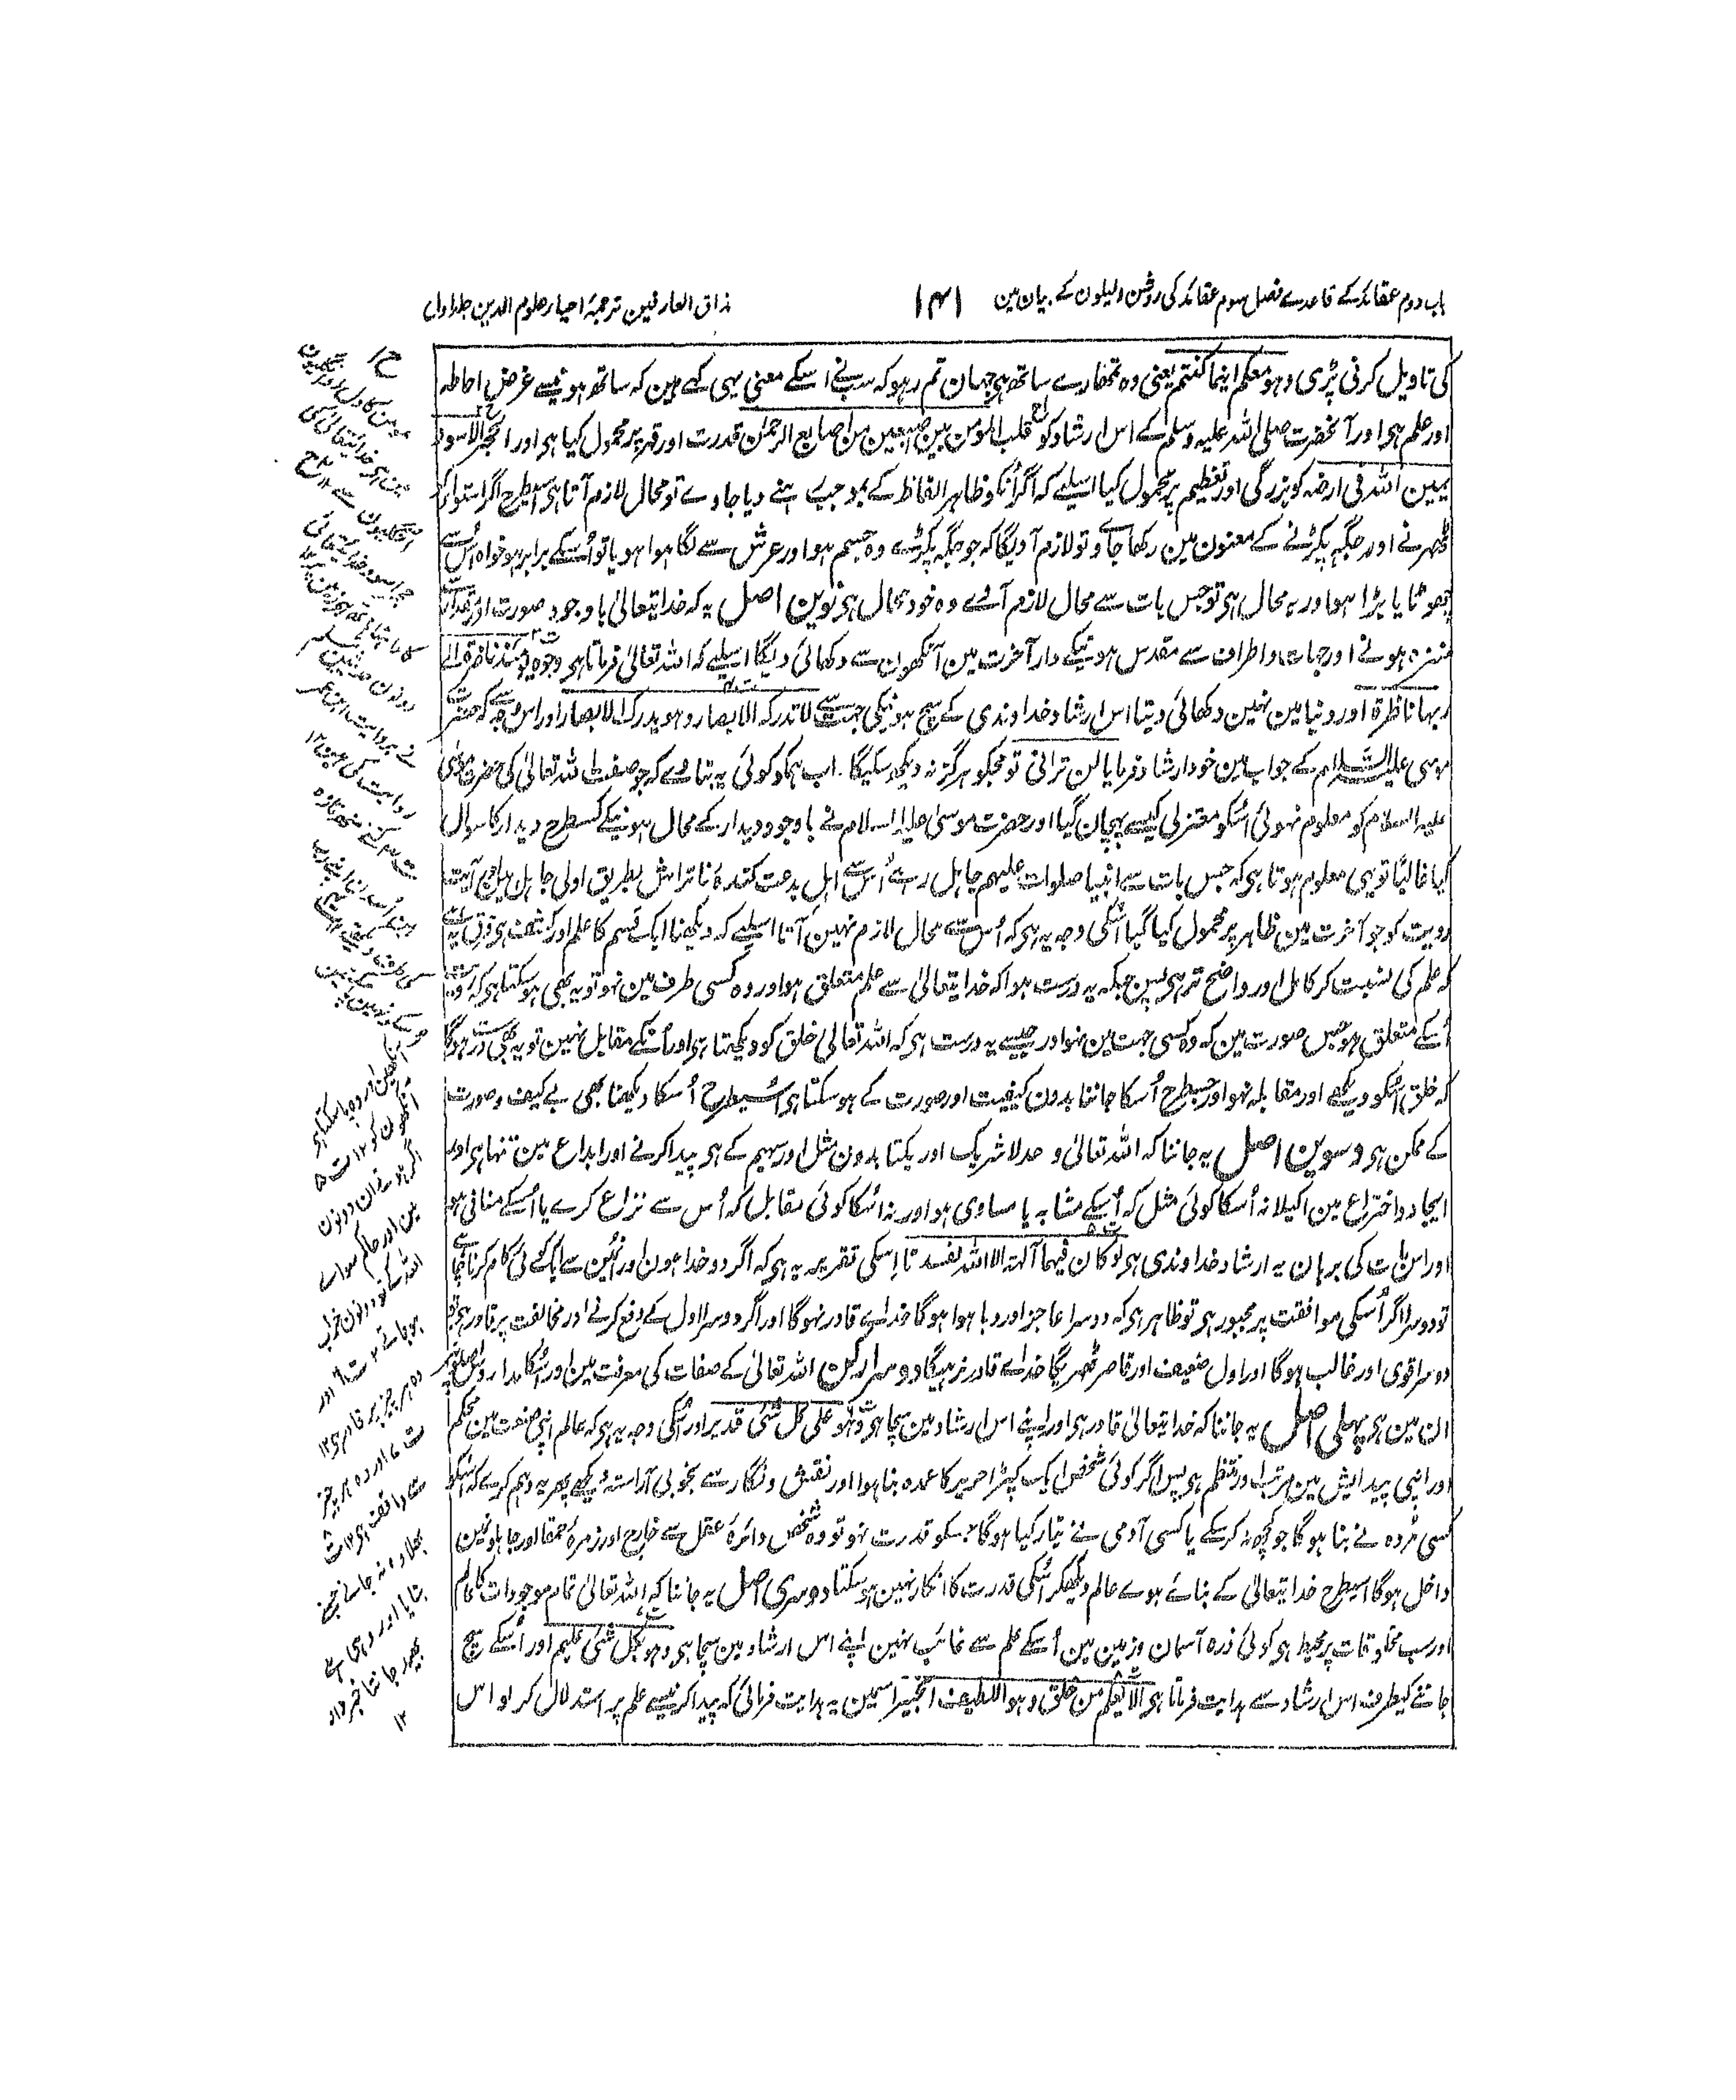 باب دوم عقائد کے قاعدے فصل سوم عقائد کی روشن دلیلون کے بیان مین
۱۴۱
مذاق العارفین ترجمۂ احیاء علوم الدین جلد اول
کی تاویل کرنی پڑی وہو معکم اینما کنتم یعنی وہ تمھارے ساتھ ہی جہان تم رہو کہ سب نے اسکے معنی یہی کہے ہین کہ ساتھ ہونیسے غرض احاطہ
اور علم ہی اور آنحضرت صلی اللہ علیہ وسلم کے اس ارشاد کو قلب المومن بین اصبعین من اصابع الرحمن قدرت اور قہر پر محمول کیا ہی اور الحجر الاسود
یمین اللہ فی ارضہ کو بزرگی اور تعظیم پر محمول کیا اسلیے کہ اگر انکو ظاہر الفاظ کے بموجب رہنے دیا جاوے تو محال لازم آتا ہی اسیطرح اگر استوا کو
ٹھہرنے اور جگہہ پکڑنے کے معنون مین رکھا جاوے تو لازم آویگا کہ جو جگہہ پکڑے وہ جسم ہو اور عرش سے لگا ہوا ہو یا تو اُسکے برابر ہو خواہ اُس سے
چھوٹا یا بڑا ہو اور یہ محال ہی تو جس بات سے محال لازم آوے وہ خود محال ہی نوین اصل یہ کہ خدا یتعالیٰ باوجود صورت اور مقدار سے
منزہ ہونے اور جہات و اطراف سے مقدس ہونیکے دار آخرت مین آنکھون سے دکھائی دیگا اسلیے کہ اللہ تعالیٰ فرماتا ہی وجوہ یومئذ ناضرۃ الی
ربہا ناظرۃ اور دنیا مین نہین دکھائی دیتا اس ارشاد خداوندی کے سچ ہونیکی جہت سے لا تدرکہ الابصار و ہو یدرک الابصار اور اس وجہ سے کہ حضرت
موسی علیہ السلام کے جواب مین خود ارشاد فرمایا لن ترانی تو مجکو ہرگز نہ دیکھ سکیگا. اب ہمکو کوئی یہ بتاوے کہ جو صفت اللہ تعالیٰ کی حضرت موسی
علیہ السلام کو معلوم نہوئی اسکو معتزلی کیسے پہچان گیا اور حضرت موسی علیہ السلام نے باوجود دیدار کے محال ہونیکے کسطرح دیدار کا سوال
کیا غالبًا تو یہی معلوم ہوتا ہی کہ جس بات سے انبیا صلوات علیہم جاہل رہے اُس سے اہل بدعت کندۂ ناتراش بطریق اولی جاہل ہون اور آیت
رویت کو جو آخرت مین ظاہر پر محمول کیا گیا اسکی وجہ یہ ہی کہ اُس سے محال لازم نہین آتا اسلیے کہ دیکھنا ایک قسم کا علم اور کشف ہی فرق یہ ہے
کہ علم کی نسبت کر کامل اور واضح تر ہی پس جبکہ یہ درست ہوا کہ خدا یتعالیٰ سے علم متعلق ہو اور وہ کسی طرف مین نہو تو یہ بھی ہو سکتا ہی کہ رویت
اُسکے متعلق ہو جس صورت مین کہ وہ کسی جہت مین نہو اور جیسے یہ درست ہی کہ اللہ تعالیٰ خلق کو دیکھتا ہی اور اُنکے مقابل نہین تو یہ بھی درست ہوگا
کہ خلق اُسکو دیکھے اور مقابلہ نہو اور جسطرح اُسکا جاننا بدون کیفیت اور صورت کے ہو سکتا ہی اُسیطرح اُسکا دیکھنا بھی بے کیف و صورت
کے ممکن ہی دسوین اصل یہ جاننا کہ اللہ تعالیٰ وحدہ لا شریک اور یکتا بدون مثل اور سہیم کے ہی پیدا کرنے اور ابداع مین تنہا ہی اور
ایجاد و اختراع مین اکیلا نہ اُسکا کوئی مثل کہ اُسکے مشابہ یا مساوی ہو اور نہ اُسکا کوئی مقابل کہ اُس سے نزاع کرے یا اُسکے منافی ہو
اور اس بات کی برہان یہ ارشاد خداوندی ہی لو کان فیہما آلہۃ الا اللہ لفسدتا اِسکی تقریر یہ ہی کہ اگر دو خدا ہون اور اُنمین سے ایک کوئی کام کرنا چاہے
تو دوسرا اگر اُسکی موافقت پر مجبور ہی تو ظاہر ہی کہ دوسرا عاجز اور دبا ہوا ہوگا خداے قادر نہوگا اور اگر دوسرا اول کے دفع کرنے اور مخالفت پر قادر ہی تو
دوسرا قوی اور غالب ہوگا اور اول ضعیف اور قاصر ٹھہریگا خداے قادر نرہیگا دوسرا رکن اللہ تعالیٰ کے صفات کی معرفت مین اور اُسکا مدار دس اصلون پر
ان مین ہی پہلی اصل یہ جاننا کہ خدا یتعالیٰ قادر ہی اور اپنے اس ارشاد مین سچا ہی وہو علی کل شئی قدیر اور اُسکی وجہ یہ ہی کہ عالم اپنی صنعت مین محکم
اور اپنی پیدایش مین مرتب اور منتظم ہی پس اگر کوئی شخص ایک کپڑا حریر کا عمدہ بنا ہوا اور نقش و نگار سے بخوبی آراستہ دیکھے پھر یہ وہم کرے کہ اسکو
کسی مُردہ نے بنا ہوگا جو کچھ نہ کر سکے یا کسی آدمی نے تیار کیا ہوگا جسکو قدرت نہو تو وہ شخص دائرہ عقل سے خارج اور زمرۂ حمقا اور جاہلونمین
داخل ہوگا اسیطرح خدا یتعالیٰ کے بنائے ہوے عالم دیکھکر اُسکی قدرت کا انکار نہین ہو سکتا دوسری اصل یہ جاننا کہ اللہ تعالیٰ تمام موجودات کا عالم
اور سب مخلوقات پر محیط ہی کوئی ذرہ آسمان و زمین مین اُسکے علم سے غائب نہین اپنے اس ارشاد مین سچا ہی وہو بکل شئی علیم اور اُسکے سچ
جاننے کیطرف اس ارشاد سے ہدایت فرماتا ہی الا یعلم من خلق وہو اللطیف الخبیر اسمین یہ ہدایت فرمائی کہ پیدا کرنیسے علم پر استدلال کر لو اس
ح ۱
مومن کا دل دو انگلیون
مین ہی خدا یتعالیٰ کی
انگلیون سے ۱۲ ح
حجر اسود خدا یتعالیٰ
دونون حدیثین
نے بروایت ابن عمر
روایت کی ہین ۱۲
ت ۳ کتنے منھ تازہ
آنکھین اور وہ پا سکتا ہی
آنکھون کو ۱۲ ت ۵
اگر ہوتے ان دونون
مین اور حاکم سواے
اللہ کے تو دونون خراب
ہو جاتے ۱۲ ت ۶ اور
وہ ہر چیز پر قادر ہی ۱۲
ت ۷ اور وہ ہر چیز
سے واقف ہی ۱۲ ت
بھلا وہ نہ جانے جسنے
بنایا اور وہی ہے
بھید جانتا خبردار
۱۲